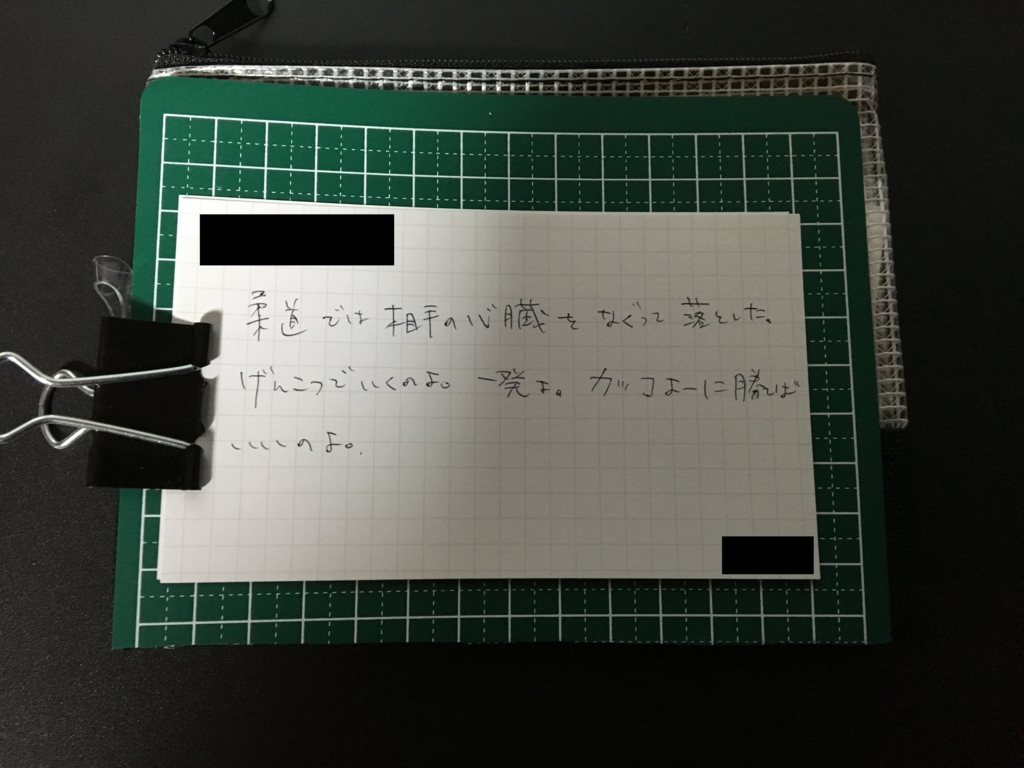 柔道では相手の心臓をなぐって落とした。
げんこつでいくのよ。一発よ。カッコよーに勝てば
いいのよ。